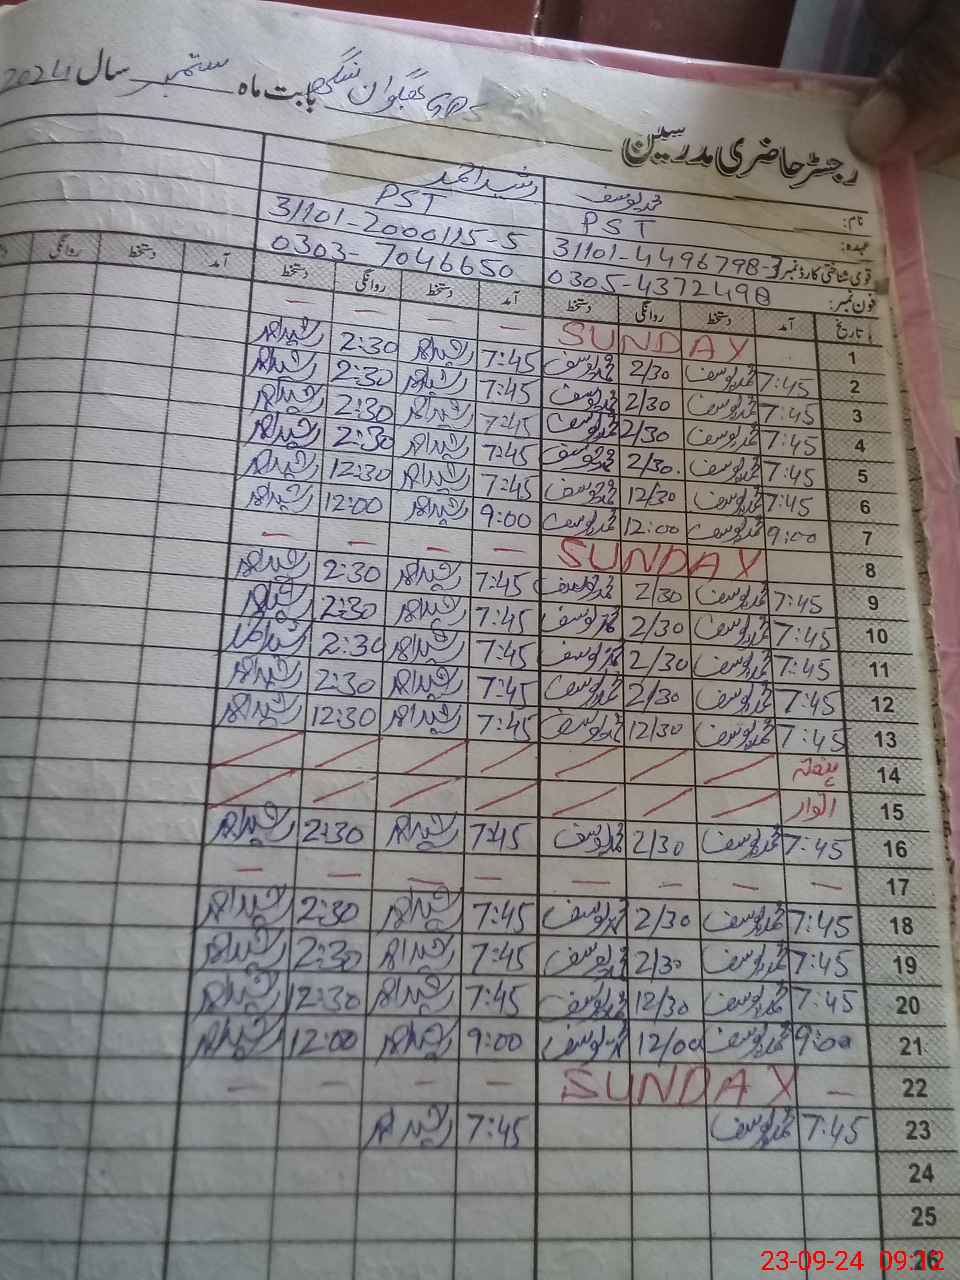 رجسٹر حاضری مدرسین GPS بھگوان سنگھ بابت ماہ ستمبر سال 2024
نام: محمد یوسف رشید احمد
عہدہ: PST PST
قومی شناختی کارڈ نمبر: 31101-4496798-3 31101-2000115-5
فون نمبر: 0305-4372498 0303-7046650
تاریخ آمد دستخط روانگی دستخط آمد دستخط روانگی دستخط آمد دستخط روانگی
1 SUNDAY — — — —
2 7:45 محمد یوسف 2/30 محمد یوسف 7:45 رشید احمد 2:30 رشید احمد
3 7:45 محمد یوسف 2/30 محمد یوسف 7:45 رشید احمد 2:30 رشید احمد
4 7:45 محمد یوسف 2/30 محمد یوسف 7:45 رشید احمد 2:30 رشید احمد
5 7:45 محمد یوسف 2/30 محمد یوسف 7:45 رشید احمد 2:30 رشید احمد
6 7:45 محمد یوسف 12/30 محمد یوسف 7:45 رشید احمد 12:30 رشید احمد
7 9:00 محمد یوسف 12:00 محمد یوسف 9:00 رشید احمد 12:00 رشید احمد
8 SUNDAY — — — —
9 7:45 محمد یوسف 2/30 محمد یوسف 7:45 رشید احمد 2:30 رشید احمد
10 7:45 محمد یوسف 2/30 محمد یوسف 7:45 رشید احمد 2:30 رشید احمد
11 7:45 محمد یوسف 2/30 محمد یوسف 7:45 رشید احمد 2:30 رشید احمد
12 7:45 محمد یوسف 2/30 محمد یوسف 7:45 رشید احمد 2:30 رشید احمد
13 7:45 محمد یوسف 12/30 محمد یوسف 7:45 رشید احمد 12:30 رشید احمد
14 ہفتہ / / / / / / /
15 اتوار / / / / / / /
16 7:45 محمد یوسف 2/30 محمد یوسف 7:45 رشید احمد 2:30 رشید احمد
17 — — — — — — — —
18 7:45 محمد یوسف 2/30 محمد یوسف 7:45 رشید احمد 2:30 رشید احمد
19 7:45 محمد یوسف 2/30 محمد یوسف 7:45 رشید احمد 2:30 رشید احمد
20 7:45 محمد یوسف 12/30 محمد یوسف 7:45 رشید احمد 12:30 رشید احمد
21 9:00 محمد یوسف 12/00 محمد یوسف 9:00 رشید احمد 12:00 رشید احمد
22 — SUNDAY — — — —
23 7:45 محمد یوسف 7:45 رشید احمد
24
25
26
23-09-24 09:12